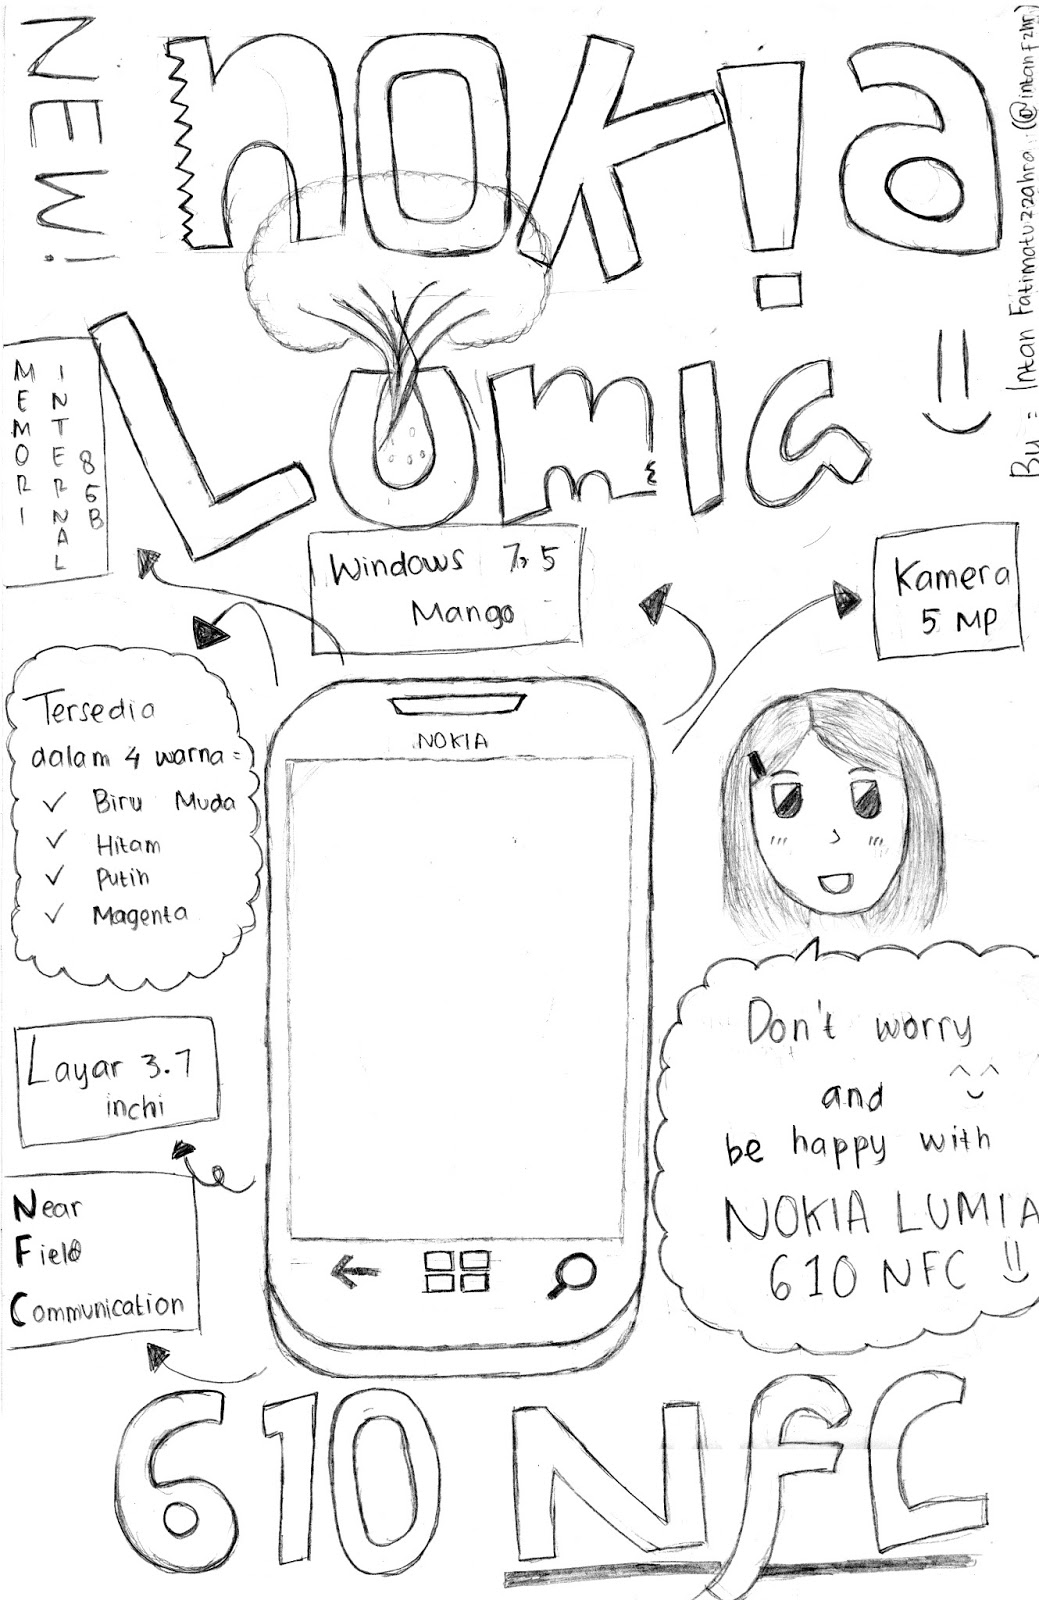 NEW!
nokia
Lumia
By : Intan Fatimatuzzahra (@intanfzhr)
MEMORI
INTERNAL
8GB
Windows 7,5
Mango
Kamera
5 MP
Tersedia
dalam 4 warna :
✓ Biru Muda
✓ Hitam
✓ Putih
✓ Magenta
NOKIA
Layar 3.7
inchi
Near
Field
Communication
Don't worry
and ^‿^
be happy with
NOKIA LUMIA
610 NFC
610 NfC